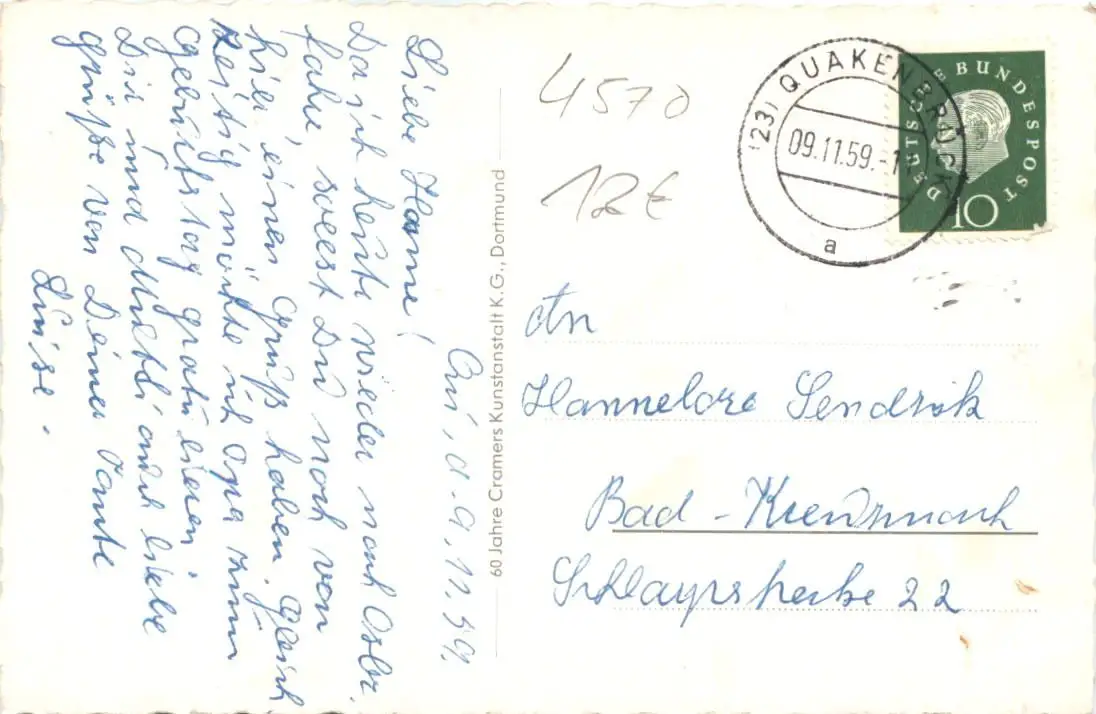 Qu, d. 9.11.59.
Liebe Hanne!
Da ich heute wieder nach Osbr.
fahre, sollst Du noch von
hier einen Gruß haben. Gleich
zeitig möchte ich Opa zum
Geburtstag gratulieren
Dir und Mutti liebe
Grüße von Deiner Tante
Luise.
60 Jahre Cramers Kunstanstalt K.G., Dortmund
4570
12€
(23) QUAKENBRÜCK
09.11.59.-1
a
DEUTSCHE BUNDESPOST
10
An
Hannelore Sendrik
Bad-Kreuznach
22